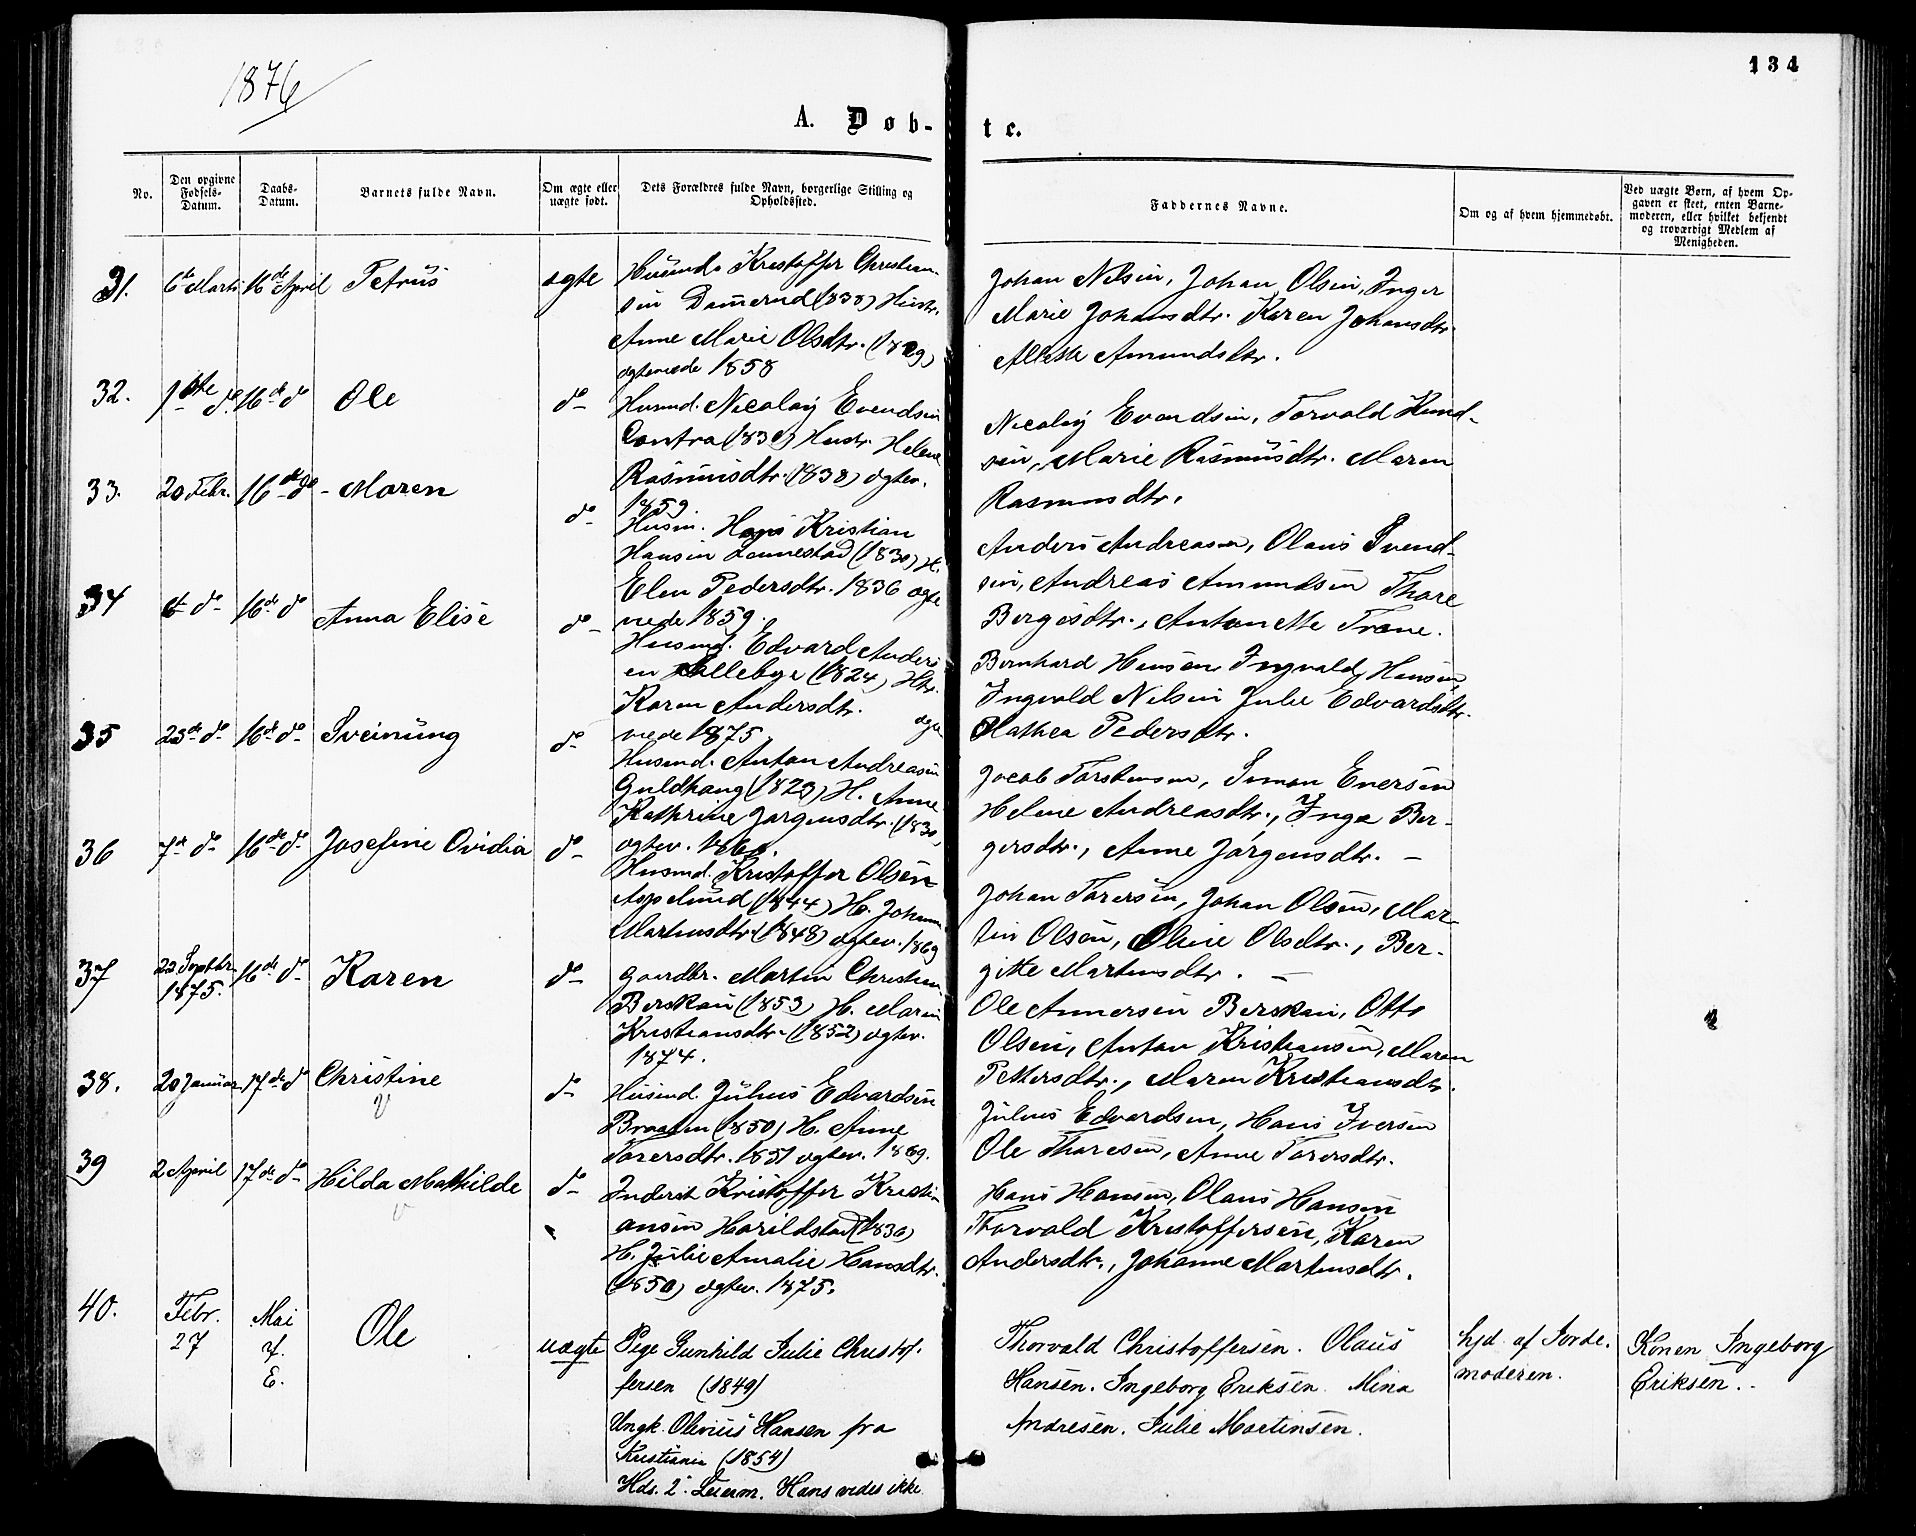 1876
134
A. Døb-
te.
No.
Den opgivne Fødsels-Datum.
Daabs-Datum.
Barnets fulde Navn.
Om ægte eller uægte født.
Dets Forældres fulde Navn, borgerlige Stilling og Opholdssted.
Faddernes Navne.
Om og af hvem hjemmedøbt.
Ved uægte Børn, af hvem Op-
gaven er skeet, enten Barne-
moderen, eller hvilket bekjendt
og troværdigt Medlem af
Menigheden.
31. 6te Marts 16de April Petrus ægte
Husmd. Kristoffer Christian-
sen (1838) Hustr.
Anne Marie Olsdtr.
ægteviede 1858
Johan Nilsen, Johan Olsen, Inger
Marie Johansdtr. Karen Johansdtr.
Amundsdtr.
32. do 16de do Ole do
Husmd. Nicolay Evendsen
Hustr. Helene
Rasmusdtr. (1838) ægtev.
1859.
Nicolay Evendsen, Torvald Knud-
sen, Marie Rasmusdtr. Maren
Rasmusdtr.
33. 20 Febr. 16de do Maren do
Husm. Hans Kristian
Hansen Lannestad (1830) H.
Elen Pedersdtr. 1836 ægte
viede 1859.
Anders Andreasen, Olaus Svend-
sen, Andreas Amundsen Thore
Antonette Trane.
34 do 16de do Anna Elise do
Husmd. Edvard Anders
en Sollebye (1824) Htr.
Karen Andersdtr. ægte
viede 1875
Bernhard Hansen, Ingvald Hansen
Ingvald Nilsen Julie Edvardsdtr.
Mathea Pedersdtr.
35 23de do 16de do Sveinung do
Husmd. Anton Andreasen
Guldhaug (1823) H. Anne
Kathrine Jørgensdtr. (1830)
ægtev.
Jacob Torstensen, Simon Eversen
Helene Andreasdtr., Inga Ber-
gersdtr., Anne Jørgensdtr. —
36 7de do 16de do Josefine Ovidia do
Husmd. Kristoffer Olsen
Aspelund (1844) H. Johanne
Martinsdtr. (1848) ægtev. 1869
Johan Torersen, Johan Olsen, Mar-
tin Olsen, Oline Olsdtr., Ber-
gitte Martinsdtr. —
37 22 Septbr. 1875. 16de do Karen do
Gaardbr. Martin Christian
Berskau (1853) H. Maren
Kristiansdtr. (1852) ægtev.
1874.
Ole Annersen Berskau, Otto
Olsen, Anton Kristiansen, Maren
Pettersdtr., Maren Kristiansdtr.
38. 20 Januar 17de do Christine do
Husmd. Julius Edvardsen
Braaten (1850) H. Anne
Torersdtr. 1851 ægtev. 1869.
Julius Edvardsen, Hans Iversen
Ole Thoresen, Anne Torersdtr.
39 2 April 17de do Hilda Mathilde do
Inderst Kristoffer Kristi-
ansen Harildstad (1830)
H. Julie Amalie Hansdtr.
(1850) ægtev. 1875.
Hans Hansen, Olaus Hansen
Thorvald Kristoffersen, Karen
Andersdtr., Johanne Martinsdtr.
40. Febr. 27 Mai 7. E. Ole uægte
Pige Gunhild Julie Christof-
fersen (1849)
Ungk. Olivius Hansen fra
Kristiania (1854)
Hds. 2. Leierm. Hans vides ikke
Thorvald Christoffersen. Olaus
Hansen. Ingeborg Eriksen. Mina
Andresen. Julie Martinsen.
hjd. af Jorde-
moderen.
Konen Ingeborg
Eriksen.